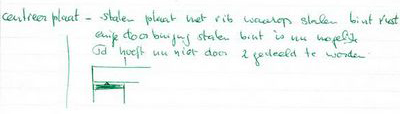 centreerplaat - stalen plaat met rib waarop stalen bint rust
enige doorbuiging stalen bint is nu mogelijk
hoeft nu niet door 2 gedeeld te worden